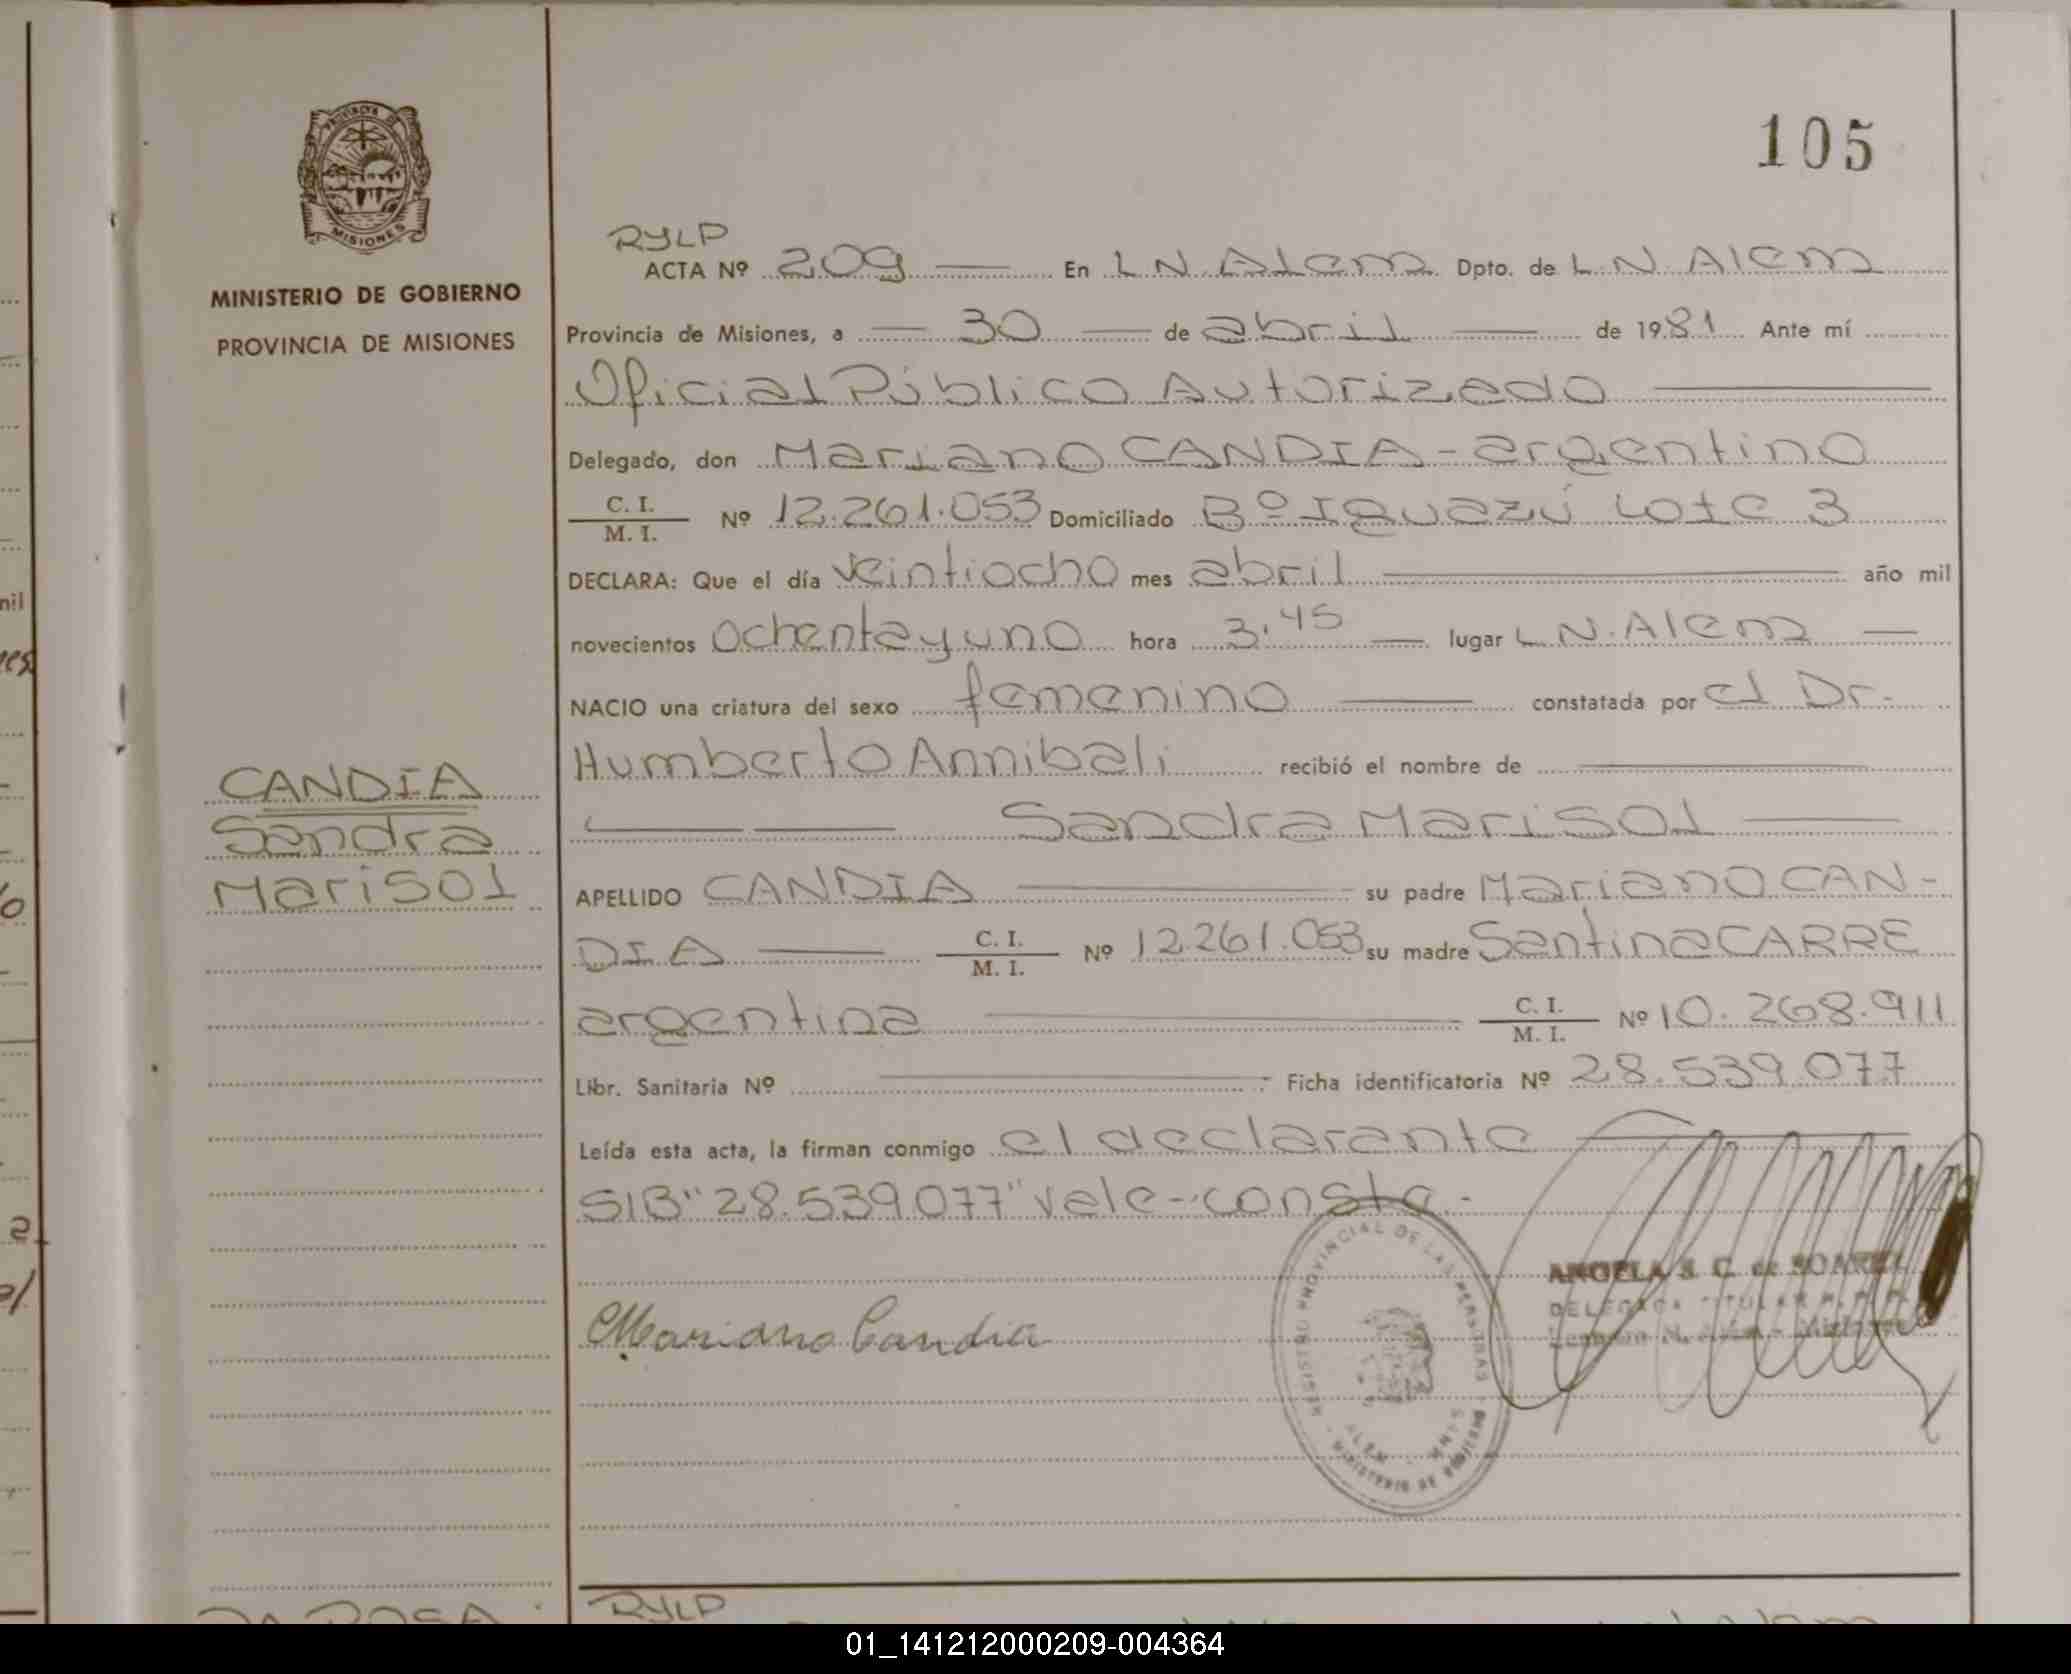 PROVINCIA DE
MISIONES
MINISTERIO DE GOBIERNO
PROVINCIA DE MISIONES
CANDIA
Sandra
Marisol
105
RYLP
ACTA Nº 209 En L N Alem Dpto. de L. N. Alem
Provincia de Misiones, a 30 de abril de 1981 Ante mí
Oficial Público Autorizado
Delegado, don Mariano CANDIA - argentino
C. I.
M. I. Nº 12.261.053 Domiciliado Bº Iguazú Lote 3
DECLARA: Que el día veintiocho mes abril año mil
novecientos ochenta y uno hora 3,45 lugar L. N. Alem
NACIO una criatura del sexo femenino constatada por el Dr.
Humberto Annibali recibió el nombre de
Sandra Marisol
APELLIDO CANDIA su padre Mariano CAN-
DIA C. I.
M. I. Nº 12.261.053 su madre Santina CARRE
argentina C. I.
M. I. Nº 10.268.911
Libr. Sanitaria Nº Ficha identificatoria Nº 28.539.077
Leída esta acta, la firman conmigo el declarante
S/B "28.539.077" vale - consta.
Mariano Candia
REGISTRO PROVINCIAL DE LAS PERSONAS
ALEM - MNES
MINISTERIO DE GOBIERNO
ANGELA S. C. de SOAREZ
DELEGADA TITULAR R. P. P.
Leandro N. Alem - Misiones
DA ROSA
RYLP
01_141212000209-004364